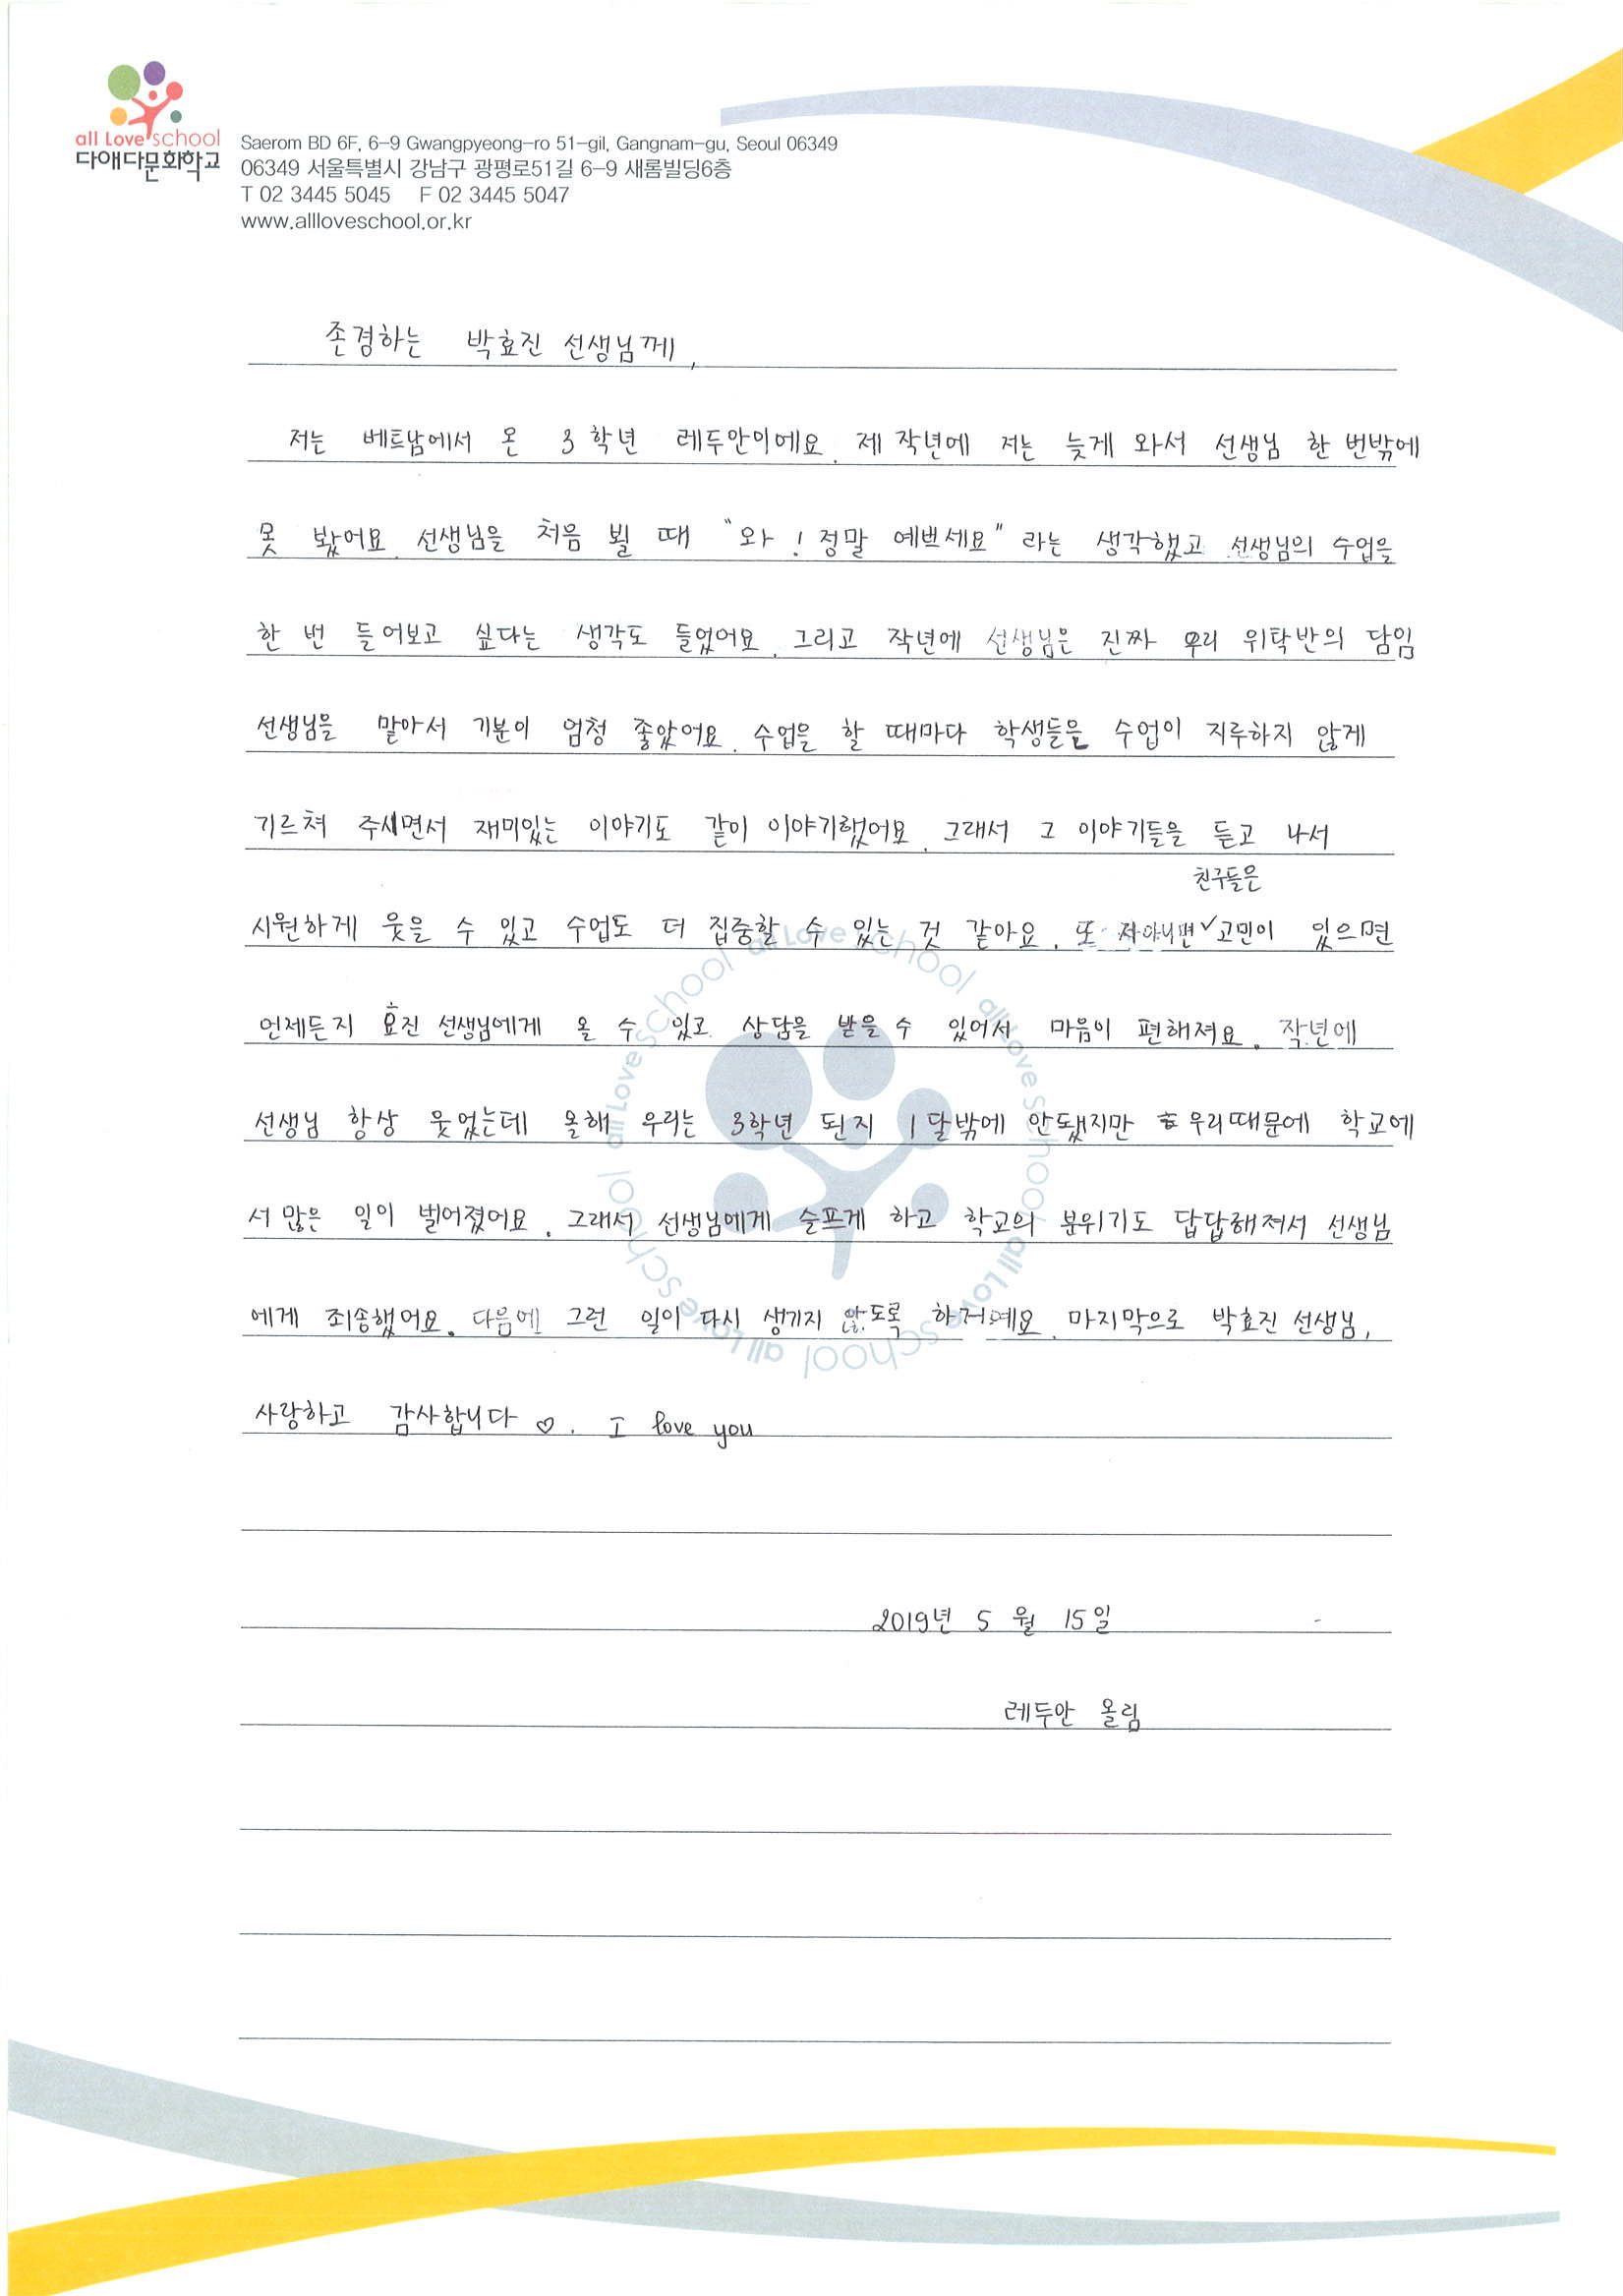 all Love school
다애다문화학교
Saerom BD 6F, 6-9 Gwangpyeong-ro 51-gil, Gangnam-gu, Seoul 06349
06349 서울특별시 강남구 광평로51길 6-9 새롬빌딩6층
T 02 3445 5045 F 02 3445 5047
www.alllloveschool.or.kr
존경하는 박효진 선생님께,
저는 베트남에서 온 3학년 레두안이에요. 제 작년에 저는 늦게 와서 선생님 한 번밖에
못 봤어요. 선생님을 처음 뵐 때 "와! 정말 예쁘세요" 라는 생각했고 선생님의 수업을
한 번 들어보고 싶다는 생각도 들었어요. 그리고 작년에 선생님은 진짜 우리 위탁반의 담임
선생님을 맡아서 기분이 엄청 좋았어요. 수업을 할 때마다 학생들은 수업이 지루하지 않게
기르쳐 주시면서 재미있는 이야기도 같이 이야기했어요. 그래서 그 이야기들을 듣고 나서
친구들은
시원하게 웃을 수 있고 수업도 더 집중할 수 있는 것 같아요. 또 저 아니면 고민이 있으면
언제든지 효진 선생님에게 올 수 있고 상담을 받을 수 있어서 마음이 편해져요. 작년에
선생님 항상 웃었는데 올해 우리는 3학년 된지 1달밖에 안됐지만 우리때문에 학교에
서 많은 일이 벌어졌어요. 그래서 선생님에게 슬프게 하고 학교의 분위기도 답답해져서 선생님
에게 죄송했어요. 다음에 그런 일이 다시 생기지 않도록 하거예요. 마지막으로 박효진 선생님,
사랑하고 감사합니다 ♡. I love you
2019년 5월 15일
레두안 올림
all Love school all Love school all Love school all Love school